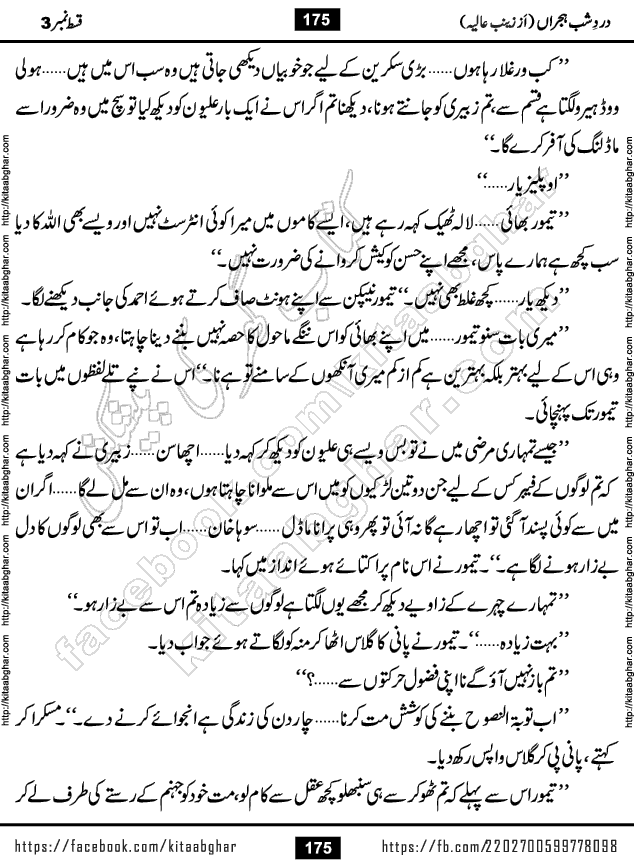 قسط نمبر 3
175
دردِ شب ہجراں (از زینب عالیہ)
’’ کب ورغلا رہا ہوں...... بڑی سکرین کے لیے جو خوبیاں دیکھی جاتی ہیں وہ سب اس میں ہیں...... ہولی
ووڈ ہیرو لگتا ہے قسم سے، تم زبیری کو جانتے ہو نا، دیکھنا تم اگر اس نے ایک بار علیون کو دیکھ لیا تو سچ میں وہ ضرور اسے
ماڈلنگ کی آفر کرے گا۔‘‘
’’او پلیز یار......‘‘
’’تیمور بھائی...... لالہ ٹھیک کہہ رہے ہیں، ایسے کاموں میں میرا کوئی انٹرسٹ نہیں اور ویسے بھی اللہ کا دیا
سب کچھ ہے ہمارے پاس، مجھے اپنے حسن کو کیش کروانے کی ضرورت نہیں۔‘‘
’’دیکھ یار...... کچھ غلط بھی نہیں۔‘‘ تیمور نیپکن سے اپنے ہونٹ صاف کرتے ہوئے احمد کی جانب دیکھنے لگا۔
’’میری بات سنو تیمور...... میں اپنے بھائی کو اس ننگے ماحول کا حصہ نہیں بننے دینا چاہتا، وہ جو کام کر رہا ہے
وہی اس کے لیے بہتر بلکہ بہترین ہے کم از کم میری آنکھوں کے سامنے تو ہے نا۔‘‘ اس نے نپے تلے لفظوں میں بات
تیمور تک پہنچائی۔
’’جیسے تمہاری مرضی میں نے تو بس ویسے ہی علیون کو دیکھ کر کہہ دیا...... اچھا سن...... زبیری نے کہہ دیا ہے
کہ تم لوگوں کے فیبرکس کے لیے جن دو تین لڑکیوں کو میں اس سے ملوانا چاہتا ہوں، وہ ان سے مل لے گا...... اگر ان
میں سے کوئی پسند آ گئی تو اچھا رہے گا نہ آئی تو پھر وہی پرانا ماڈل...... سوہا خان...... اب تو اس سے بھی لوگوں کا دل
بے زار ہونے لگا ہے۔‘‘ تیمور نے اس نام پر اکتائے ہوئے انداز میں کہا۔
’’تمہارے چہرے کے زاویے دیکھ کر مجھے یوں لگتا ہے لوگوں سے زیادہ تم اس سے بے زار ہو۔‘‘
’’بہت زیادہ......‘‘۔ تیمور نے پانی کا گلاس اٹھا کر منہ کو لگاتے ہوئے جواب دیا۔
’’تم باز نہیں آؤ گے نا اپنی فضول حرکتوں سے......؟‘‘
’’اب توبۃ النصوح بننے کی کوشش مت کرنا...... چار دن کی زندگی ہے انجوائے کرنے دے۔‘‘ مسکرا کر
کہتے، پانی پی کر گلاس واپس رکھ دیا۔
’’تیمور اس سے پہلے کہ تم ٹھوکر سے ہی سنبھلو کچھ عقل سے کام لو، مت خود کو جہنم کے رستے کی طرف لے کر
http://kitaabghar.com http://kitaabghar.com http://kitaabghar.com http://kitaabghar.com http://kitaabghar.com http://kitaabghar.com
http://kitaabghar.com http://kitaabghar.com http://kitaabghar.com http://kitaabghar.com http://kitaabghar.com http://kitaabghar.com
کتاب گھر کی پیشکش
facebook.com/kitaabghar
kitaabghar.com
https://facebook.com/kitaabghar
175
https://fb.com/2202700599778098